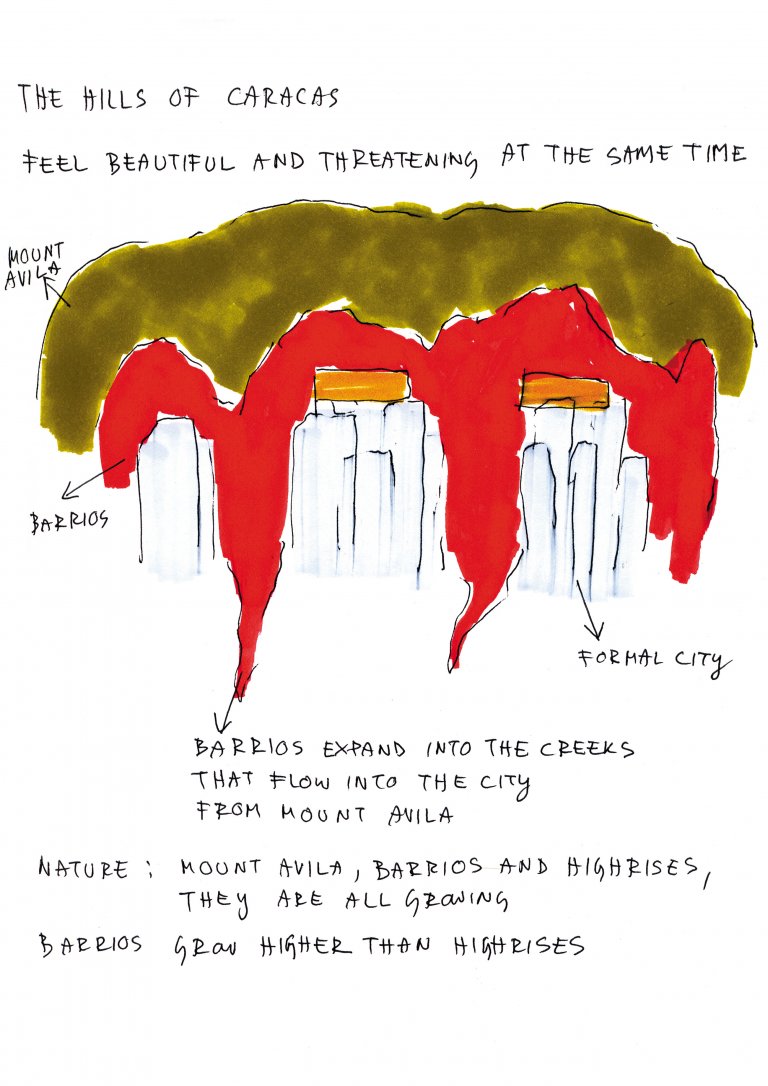 THE HILLS OF CARACAS
FEEL BEAUTIFUL AND THREATENING AT THE SAME TIME
MOUNT
AVILA
BARRIOS
FORMAL CITY
BARRIOS EXPAND INTO THE CREEKS
THAT FLOW INTO THE CITY
FROM MOUNT AVILA
NATURE: MOUNT AVILA, BARRIOS AND HIGHRISES,
THEY ARE ALL GROWING
BARRIOS GROW HIGHER THAN HIGHRISES